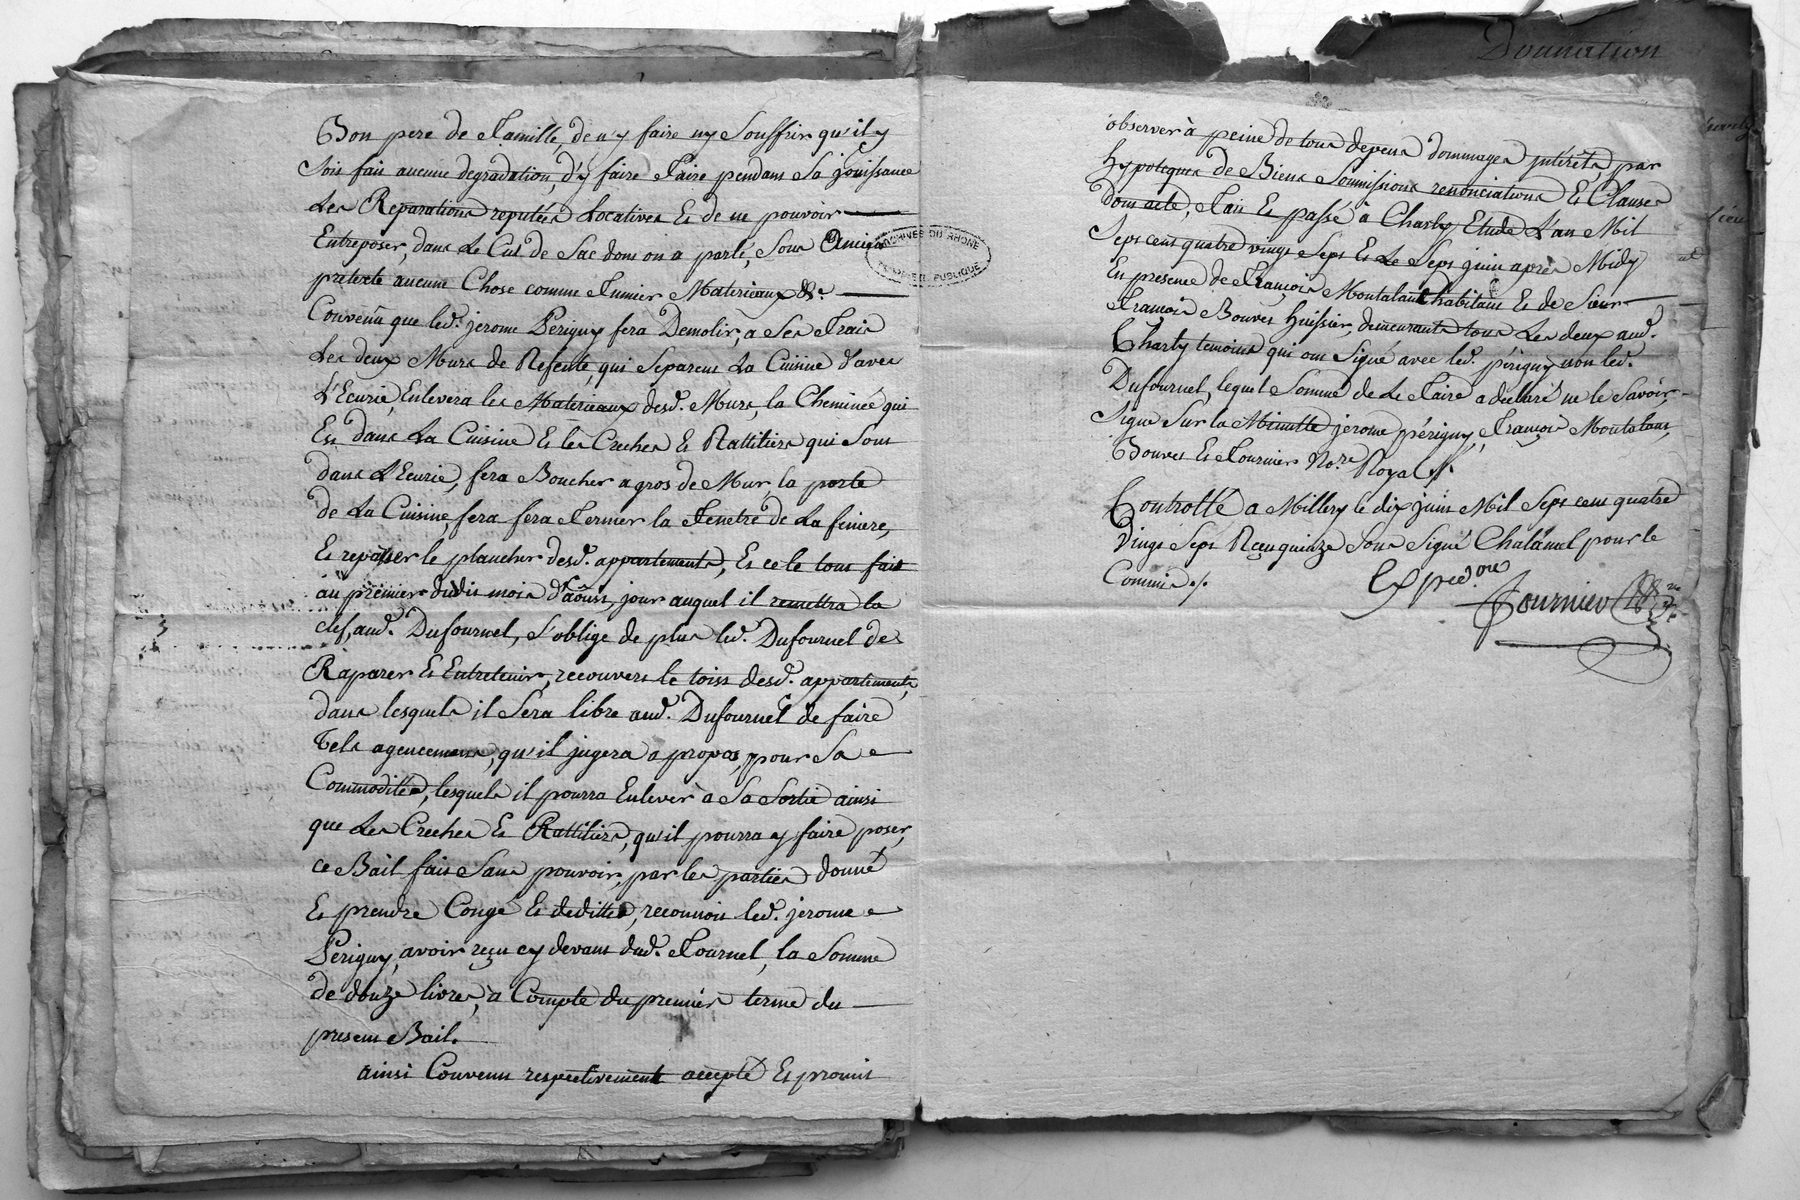 Bon pere de Famille, de n'y faire ny Souffrir qu'il y
Soit fait aucune degradation, d'y faire Faire pendant Sa jouissance
Les Reparations reputées Locatives Et de ne pouvoir
Entreposer, dans Le Cul de Sac dont on a parlé, Sous Aucun
pretexte aucune Chose comme Fumier Materieaux &c.
Convenu que led. jerome Perigny fera Demolir, a Ses Frais
Les deux Murs de Refente, qui Separent La Cuisine d'avec
L'Ecurie, Enlevera les Materieaux desd. Murs, la Cheminée qui
Est dans La Cuisine Et les Creches Et Rattiliers qui Sont
dans L'Ecurie, fera Boucher a gros de Mur, la porte
de La Cuisine, fera fera Fermer la Fenetre de La feniere,
Et repasser le plancher desd. appartements, Et ce le tout fait
au premier dudit mois d'aôust, jour auquel il remettra la
clef, aud. Dufournel, S'oblige de plus led. Dufournel de
Raparer Et Entretenir, recouvert le toist desd. appartements,
dans lesquels il Sera libre aud. Dufournel de faire
Tels agencements, qu'il jugera a propos, pour Sa
Commodittés, lesquels il pourra Enlever à Sa Sortie ainsi
que Les Creches Et Rattiliers, qu'il pourra y faire poser,
ce Bail fait Sans pouvoir, par les parties donné
Et prendre Congé Et dedittes, reconnoit led. jerome
Perigny, avoir reçu cy devant dud. Fournel, la Somme
de douze livres, à Compte du premier terme du
present Bail.
ainsi Convenu respectivement accepté Et promis
Donnation
observer à peine de tous depens dommages interêts, par
hypoteques de Biens Soumissions renonciations Et Clauses
dont acte, Fait Et passé à Charly Etude L'an Mil
Sept cent quatre vingt Sept Et Le Sept juin après Midy
En presence de François Montalant habitant Et de Sieur
François Bouvet huissier, demeurants tous Les deux aud.
Charly temoins qui ont Signé avec led. périgny non led.
Dufournel, lequel Sommé de Le Faire a declaré ne le Savoir
Signé Sur la Minutte jerome périgny, François Montalant,
Bouvet Et Fournier No.re Royal
Controllé a Millery le dix juin Mil Sept cent quatre
Vingt Sept Reçu quinze Sous Signé Chalamel pour le
Commis
Exped.on
Fournier
ARCHIVES DU RHÔNE
PAPIER PUBLIQUE